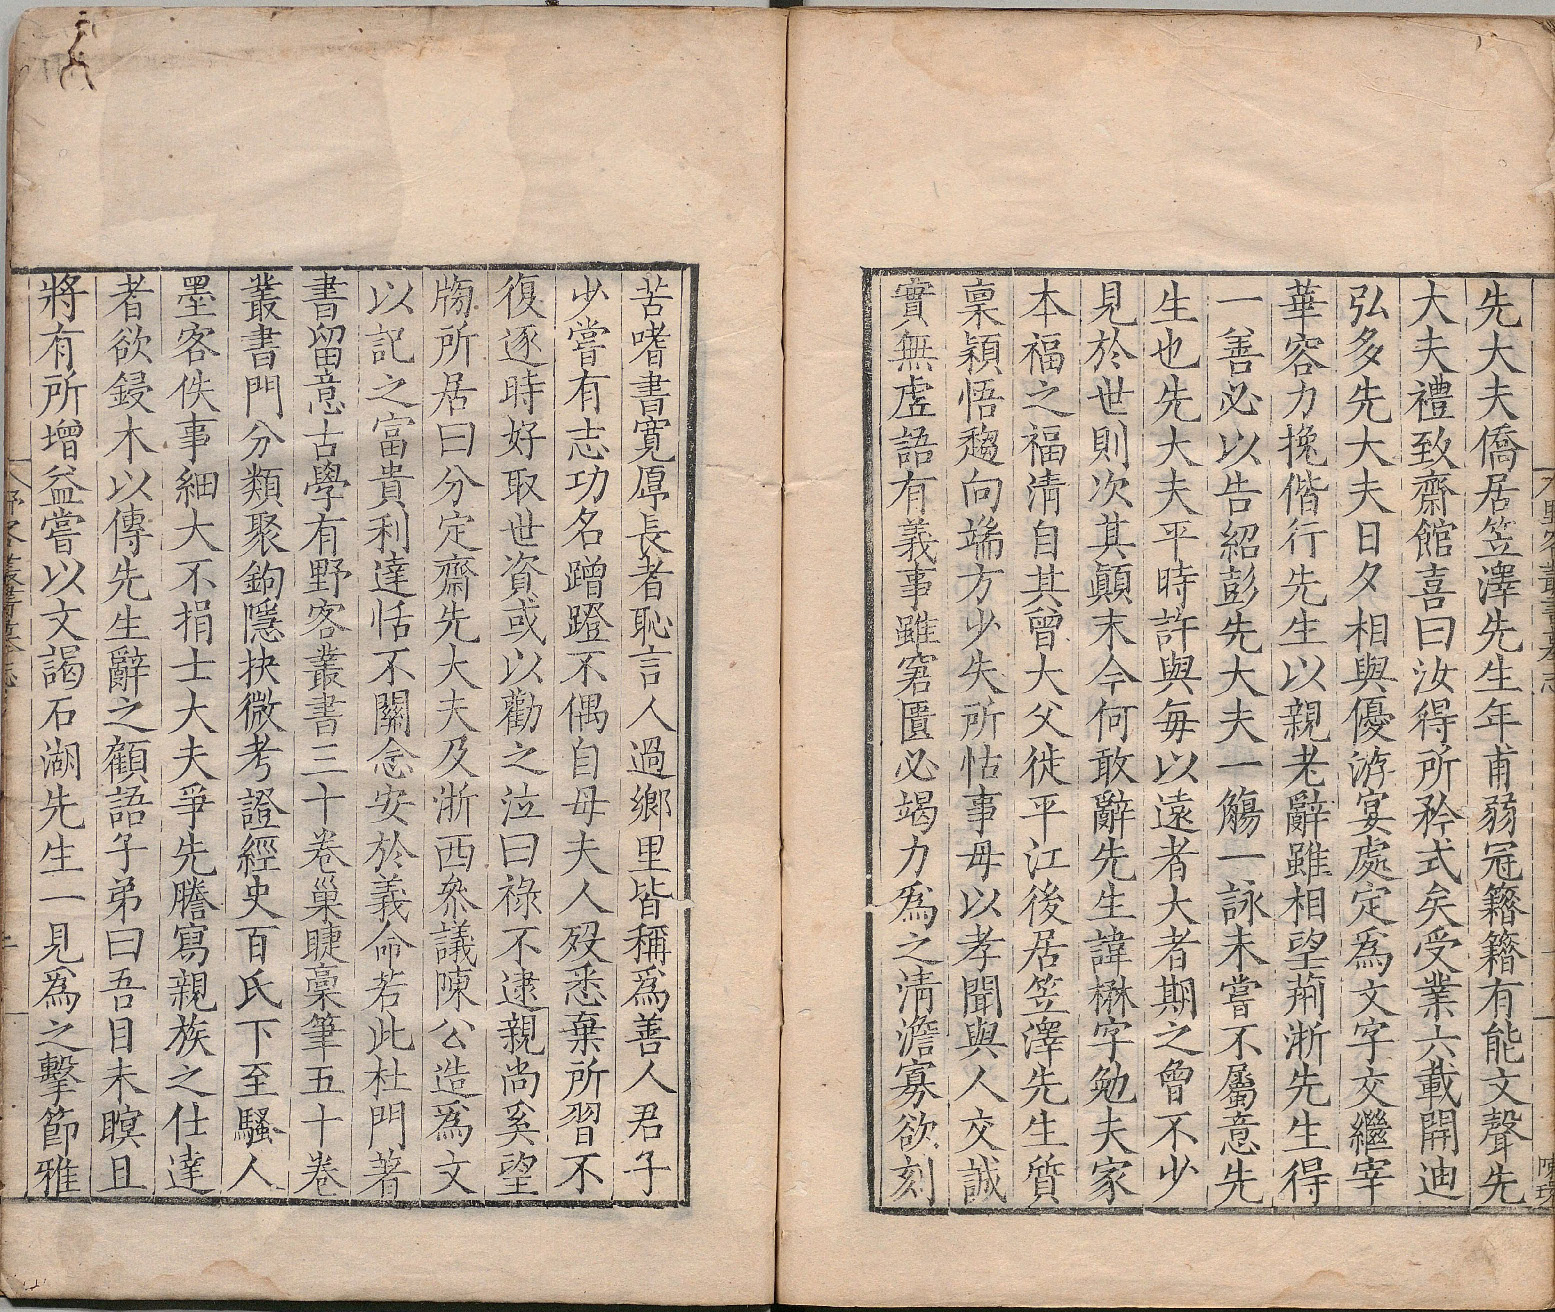 先大夫僑居笠澤先生年甫弱冠籍籍有能文聲先
大夫禮致齋館喜曰汝得所矜式矣受業六載開迪
弘多先大夫日夕相與優游宴處定爲文字交繼宰
華容力挽偕行先生以親老辭雖相望荊浙先生得
一善必以告紹彭先大夫一觴一詠未嘗不屬意先
生也先大夫平時許與每以遠者大者期之曾不少
見於世則次其顛末今何敢辭先生諱楙字勉夫家
本福之福清自其曾大父徙平江後居笠澤先生質
稟穎悟趨向端方少失所怙事母以孝聞與人交誠
實無虛語有義事雖窘匱必竭力爲之清澹寡欲刻
苦嗜書寬厚長者恥言人過鄉里皆稱爲善人君子
少嘗有志功名蹭蹬不偶自母夫人歿悉棄所習不
復逐時好取世資或以勸之泣曰祿不逮親尚奚望
牓所居曰分定齋先大夫及浙西參議陳公造爲文
以記之富貴利達恬不關念安於義命若此杜門著
書留意古學有野客叢書三十卷巢睫稾筆五十卷
叢書門分類聚鉤隱抉微考證經史百氏下至騷人
墨客佚事細大不捐士大夫爭先謄寫親族之仕達
者欲鋟木以傳先生辭之顧語子弟曰吾目未瞑且
將有所增益嘗以文謁石湖先生一見爲之擊節雅